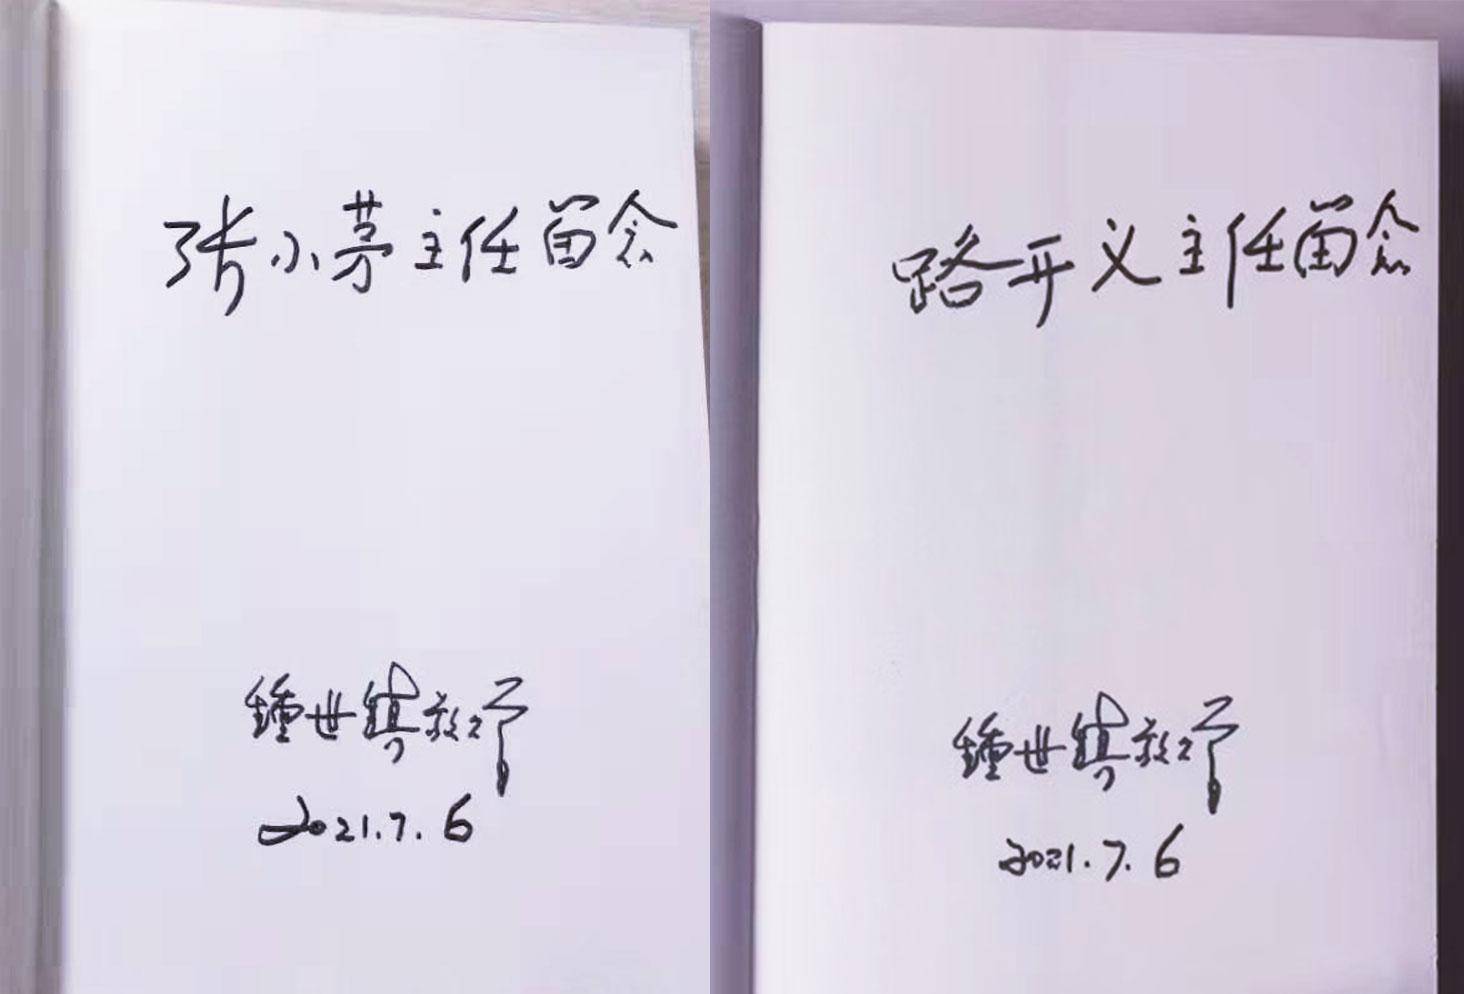 张小茅主任留念
鍾世镇敬赠
2021.7.6
路开义主任留念
鍾世镇
2021.7.6